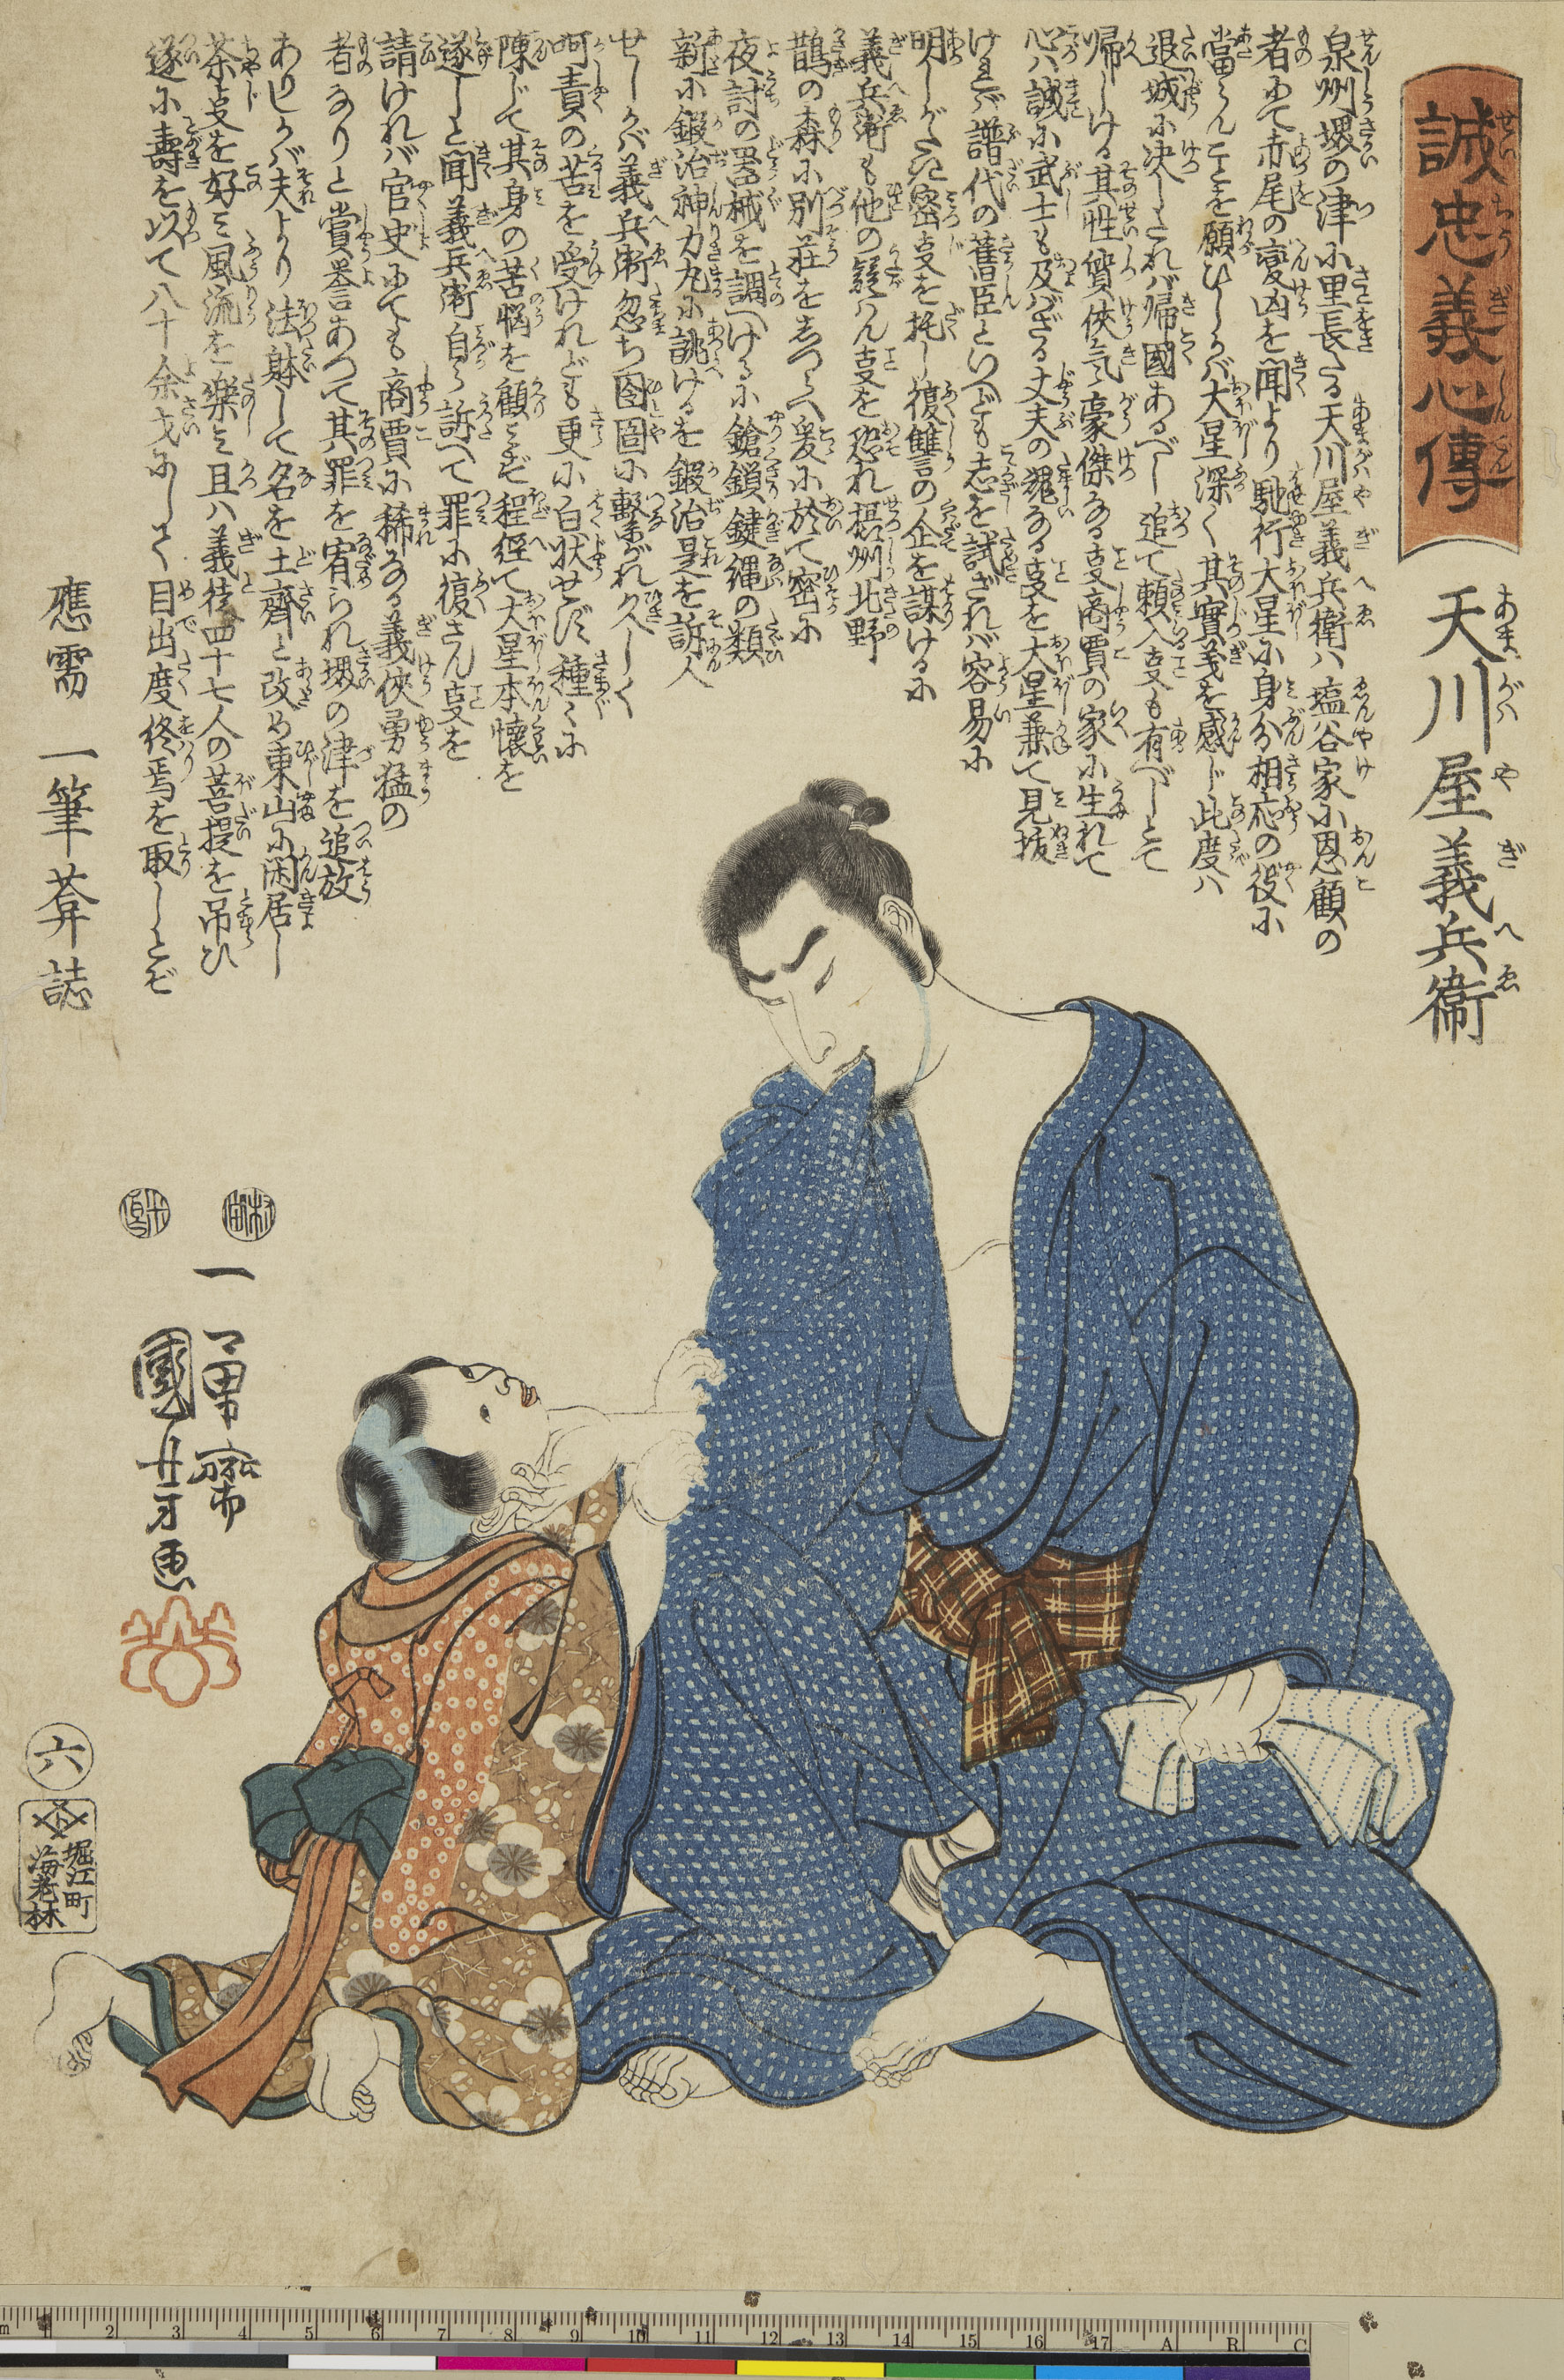 誠忠義心傳
せいちうぎしんでん
天川屋義兵衛
あまがはやぎへゑ
泉州堺の津小里長たる天川屋義兵衛ハ塩谷家小恩顧の
者にて赤尾の変凶を聞より馳行大星小身分相応の役小
當らんことを願ひしかバ大星深く其實義を感じ此度ハ
退城小决したれバ帰國あるべし追て頼入支も有べしとて
帰しける其性質侠気豪傑なる支商賈の家小生れて
心ハ誠小武士も及バざる丈夫の魂なる支を大星兼て見抜
けれど譜代の舊臣といへども志を試ざれバ容易小
明しがたた密支を托し復讐の企を謀ける小
義兵衛も他の疑ハん支を恐れ摂州北野
鵲の森小別莊をしつらへ爰小於て密小
夜討の器械を調へける小鎗鎖鍵縄の類
新小鍛治神力丸小誂けるを鍛治是を訴人
せしかバ義兵衛忽ち囹圄小繋がれ久しく
呵責の苦を受けれども更小白状せず種々小
陳じて其身の苦悩を顧ミず程經て大星本懐を
遂しと聞義兵衛自ら訴へて罪小復さん支を
請けれバ官吏にても商賈小稀なる義侠勇猛の
者なりと賞誉あつて其罪を宥られ堺の津を追放
ありしかバ夫より法躰して名を土齊と改め東山小閑居し
茶支を好ミ風流を楽ミ且ハ義徒四十七人の菩提を吊ひ
遂小壽を以て八十余才にして目出度終焉を取しとぞ
應需　一筆葊誌
村田
米良
一勇齋
國芳画
六
堀江町
海老林